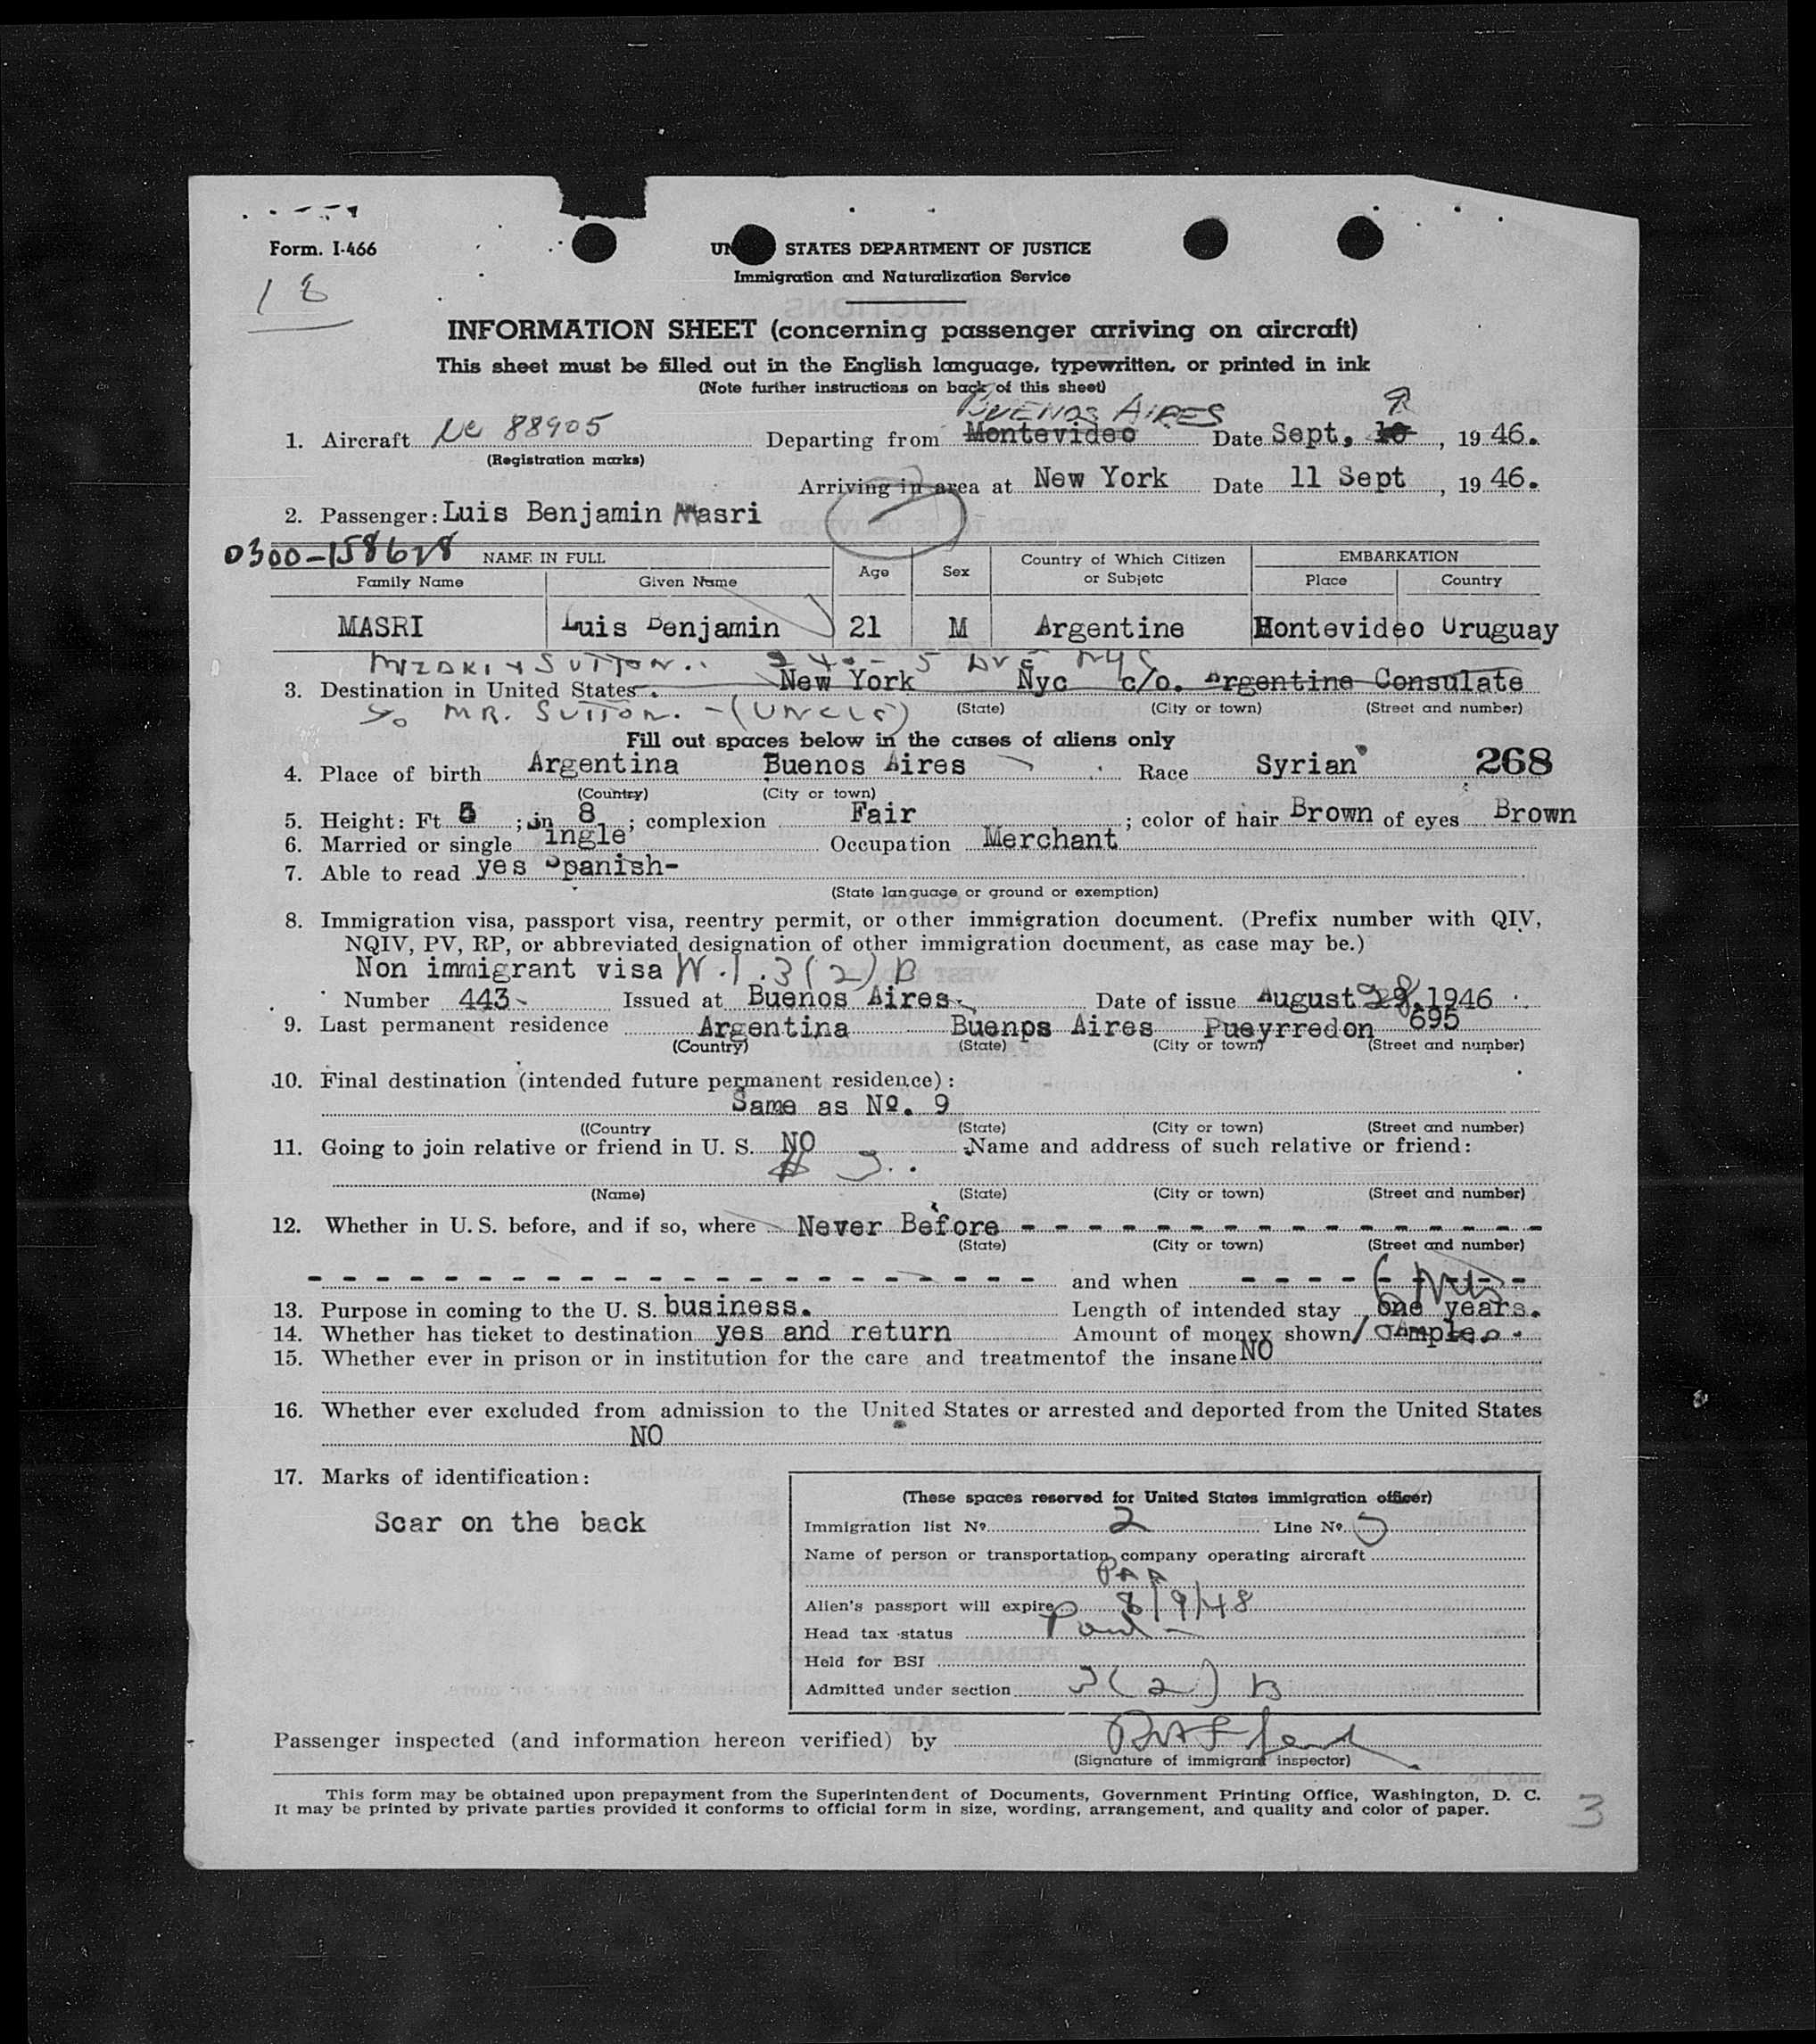 Form. I-466
18
UN STATES DEPARTMENT OF JUSTICE
Immigration and Naturalization Service
INFORMATION SHEET (concerning passenger arriving on aircraft)
This sheet must be filled out in the English language, typewritten, or printed in ink
(Note further instructions on back of this sheet)
BUENOS AIRES 9
1. Aircraft NC 88905 Departing from Montevideo Date Sept. 10, 1946.
(Registration marks)
Arriving in area at New York Date 11 Sept, 1946.
2. Passenger: Luis Benjamin Masri
0300-158628 NAME IN FULL Age Sex Country of Which Citizen or Subjetc EMBARKATION
Family Name Given Name Place Country
MASRI Luis Benjamin 21 M Argentine Montevideo Uruguay
MIZDKI & SUTTON.. 240 - 5 AVE NYC
3. Destination in United States New York Nyc c/o. Argentine Consulate
(State) (City or town) (Street and number)
MR. SUTTON. - (UNCLE)
Fill out spaces below in the cases of aliens only
4. Place of birth Argentina Buenos Aires Race Syrian 268
(Country) (City or town)
5. Height: Ft 5 ; in 8 ; complexion Fair ; color of hair Brown of eyes Brown
6. Married or single Single Occupation Merchant
7. Able to read yes Spanish-
(State language or ground or exemption)
8. Immigration visa, passport visa, reentry permit, or other immigration document. (Prefix number with QIV,
NQIV, PV, RP, or abbreviated designation of other immigration document, as case may be.)
Non immigrant visa 3(2)B
Number 443- Issued at Buenos Aires. Date of issue August 28, 1946
9. Last permanent residence Argentina Buenos Aires Pueyrredon 695
(Country) (State) (City or town) (Street and number)
10. Final destination (intended future permanent residence):
Same as Nº. 9
((Country (State) (City or town) (Street and number)
11. Going to join relative or friend in U. S. NO Name and address of such relative or friend:
# 3..
(Name) (State) (City or town) (Street and number)
12. Whether in U. S. before, and if so, where Never Before - - - - - - - - - - - - - - - -
(State) (City or town) (Street and number)
- - - - - - - - - - - - - - - - - - - - - - and when - - - - - - - - -
13. Purpose in coming to the U. S. business. Length of intended stay one years.
14. Whether has ticket to destination yes and return Amount of money shown Ample.
15. Whether ever in prison or in institution for the care and treatmentof the insane NO
16. Whether ever excluded from admission to the United States or arrested and deported from the United States
NO
17. Marks of identification:
Scar on the back
(These spaces reserved for United States immigration officer)
Immigration list Nº 2 Line Nº 5
Name of person or transportation company operating aircraft
PAA
Alien's passport will expire 8/9/48
Head tax status Paid -
Held for BSI
Admitted under section 3(2) B
Passenger inspected (and information hereon verified) by
(Signature of immigrant inspector)
This form may be obtained upon prepayment from the Superintendent of Documents, Government Printing Office, Washington, D. C.
It may be printed by private parties provided it conforms to official form in size, wording, arrangement, and quality and color of paper.
3